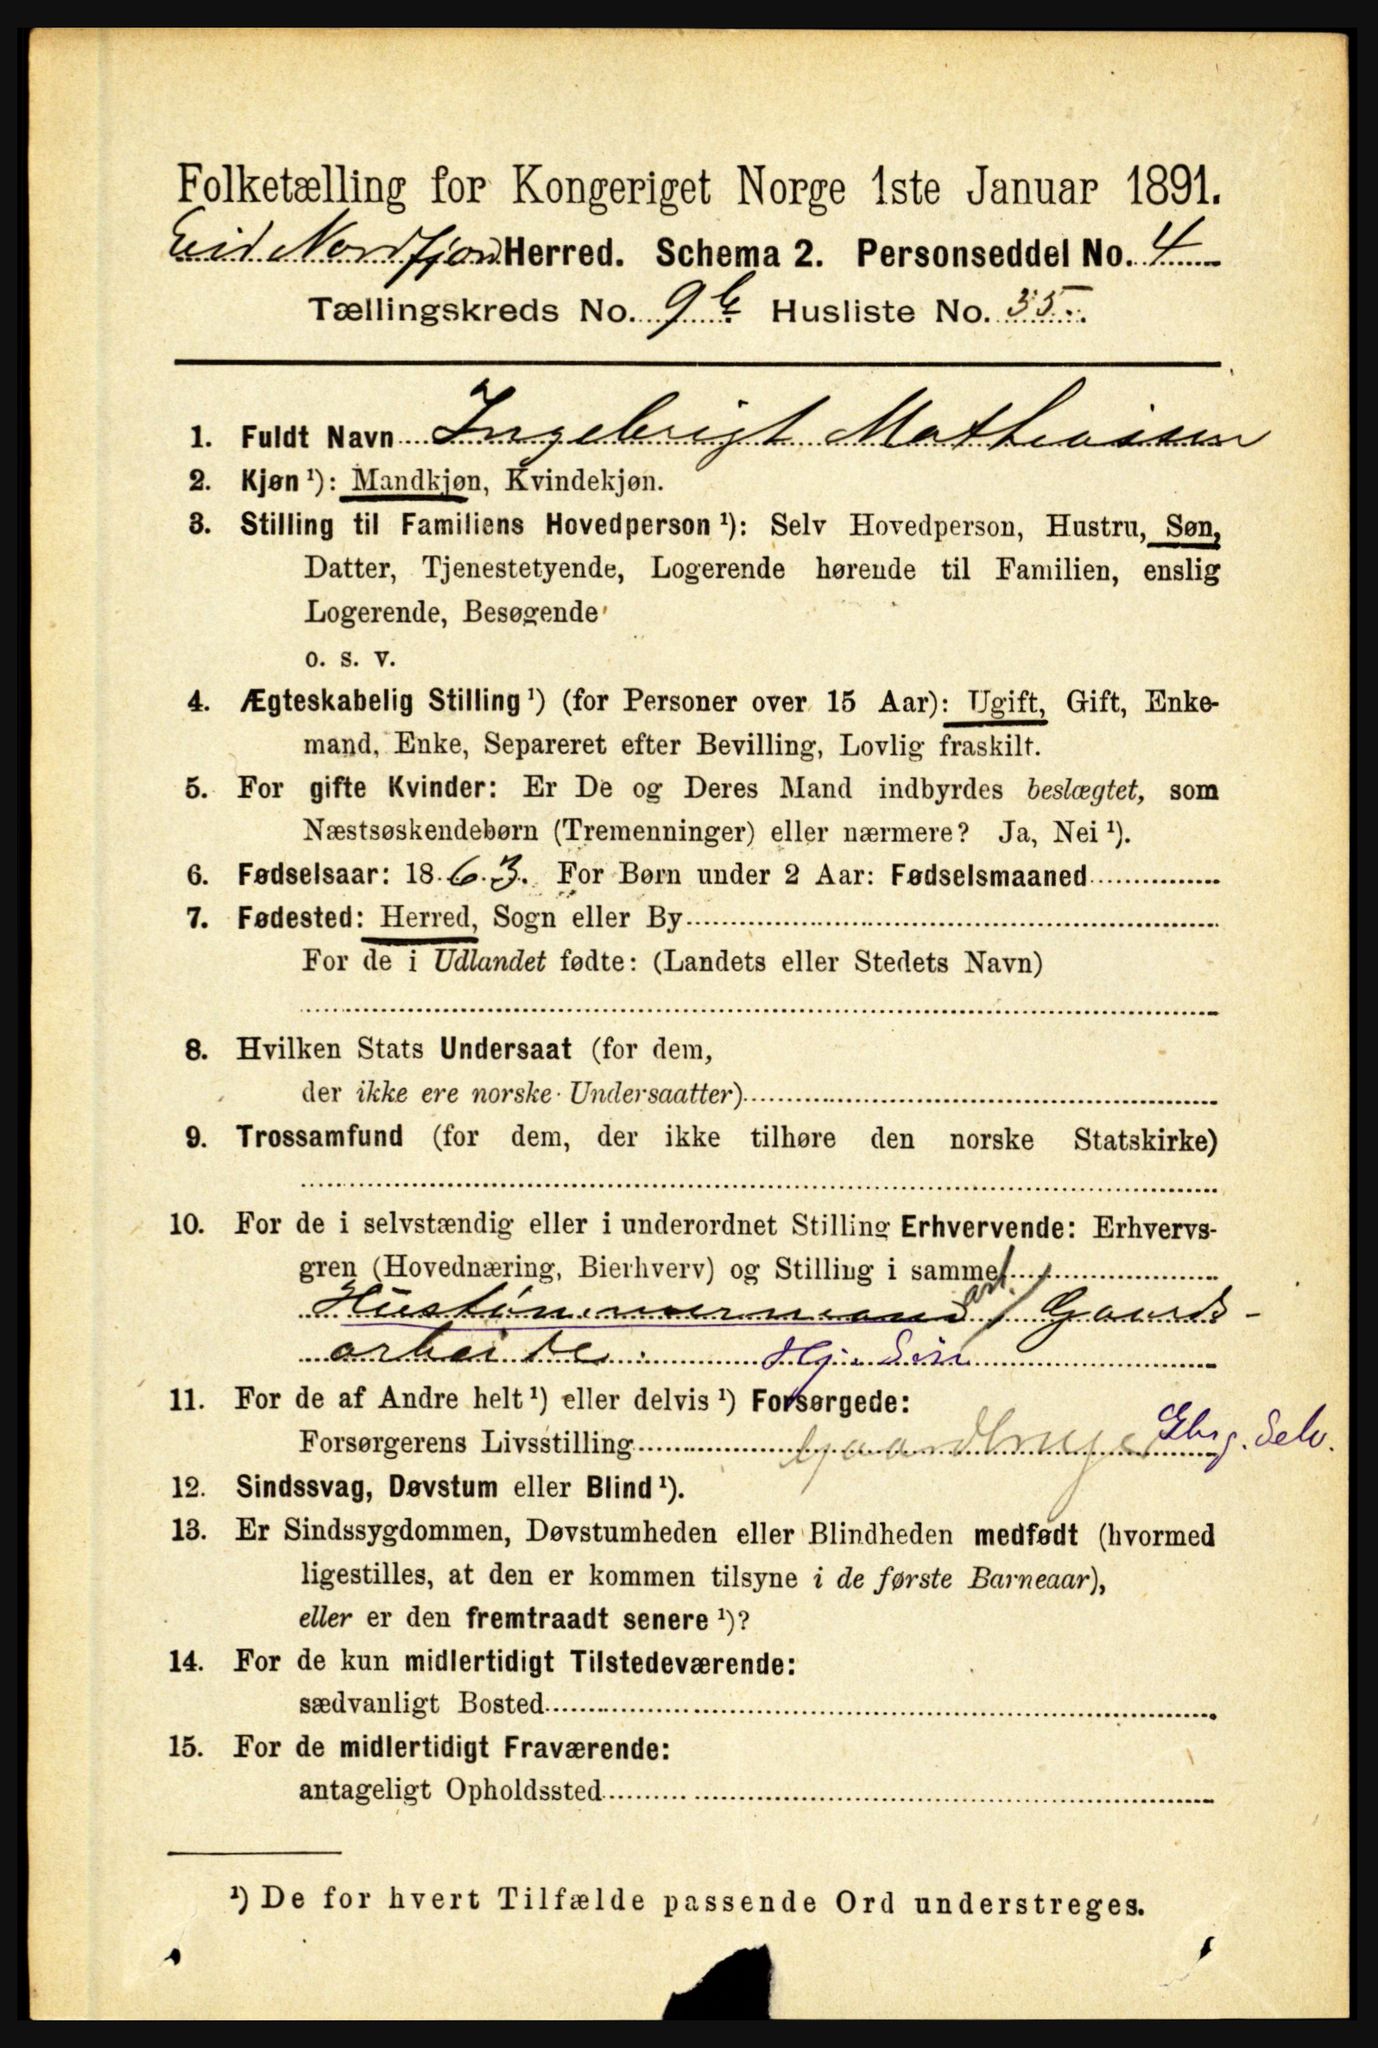 Folketælling for Kongeriget Norge 1ste Januar 1891.
Eid Nordfjord Herred. Schema 2. Personseddel No. 4
Tællingskreds No. 9 b Husliste No. 35.
1. Fuldt Navn Ingebrigt Mathiassen
2. Kjøn ¹): Mandkjøn, Kvindekjøn.
3. Stilling til Familiens Hovedperson ¹): Selv Hovedperson, Hustru, Søn,
Datter, Tjenestetyende, Logerende hørende til Familien, enslig
Logerende, Besøgende
o. s. v.
4. Ægteskabelig Stilling ¹) (for Personer over 15 Aar): Ugift, Gift, Enke-
mand, Enke, Separeret efter Bevilling, Lovlig fraskilt.
5. For gifte Kvinder: Er De og Deres Mand indbyrdes beslægtet, som
Næstsøskendebørn (Tremenninger) eller nærmere? Ja, Nei ¹).
6. Fødselsaar: 1863. For Børn under 2 Aar: Fødselsmaaned
7. Fødested: Herred, Sogn eller By
For de i Udlandet fødte: (Landets eller Stedets Navn)
8. Hvilken Stats Undersaat (for dem,
der ikke ere norske Undersaatter)
9. Trossamfund (for dem, der ikke tilhøre den norske Statskirke)
10. For de i selvstændig eller i underordnet Stilling Erhvervende: Erhvervs-
gren (Hovednæring, Bierhverv) og Stilling i samme
Hustømmermand arb. / Gaards-
arbeide. Hj. Søn
11. For de af Andre helt ¹) eller delvis ¹) Forsørgede:
Forsørgerens Livsstilling Gaardbruger Selv.
12. Sindssvag, Døvstum eller Blind ¹).
13. Er Sindssygdommen, Døvstumheden eller Blindheden medfødt (hvormed
ligestilles, at den er kommen tilsyne i de første Barneaar),
eller er den fremtraadt senere ¹)?
14. For de kun midlertidigt Tilstedeværende:
sædvanligt Bosted
15. For de midlertidigt Fraværende:
antageligt Opholdssted
¹) De for hvert Tilfælde passende Ord understreges.